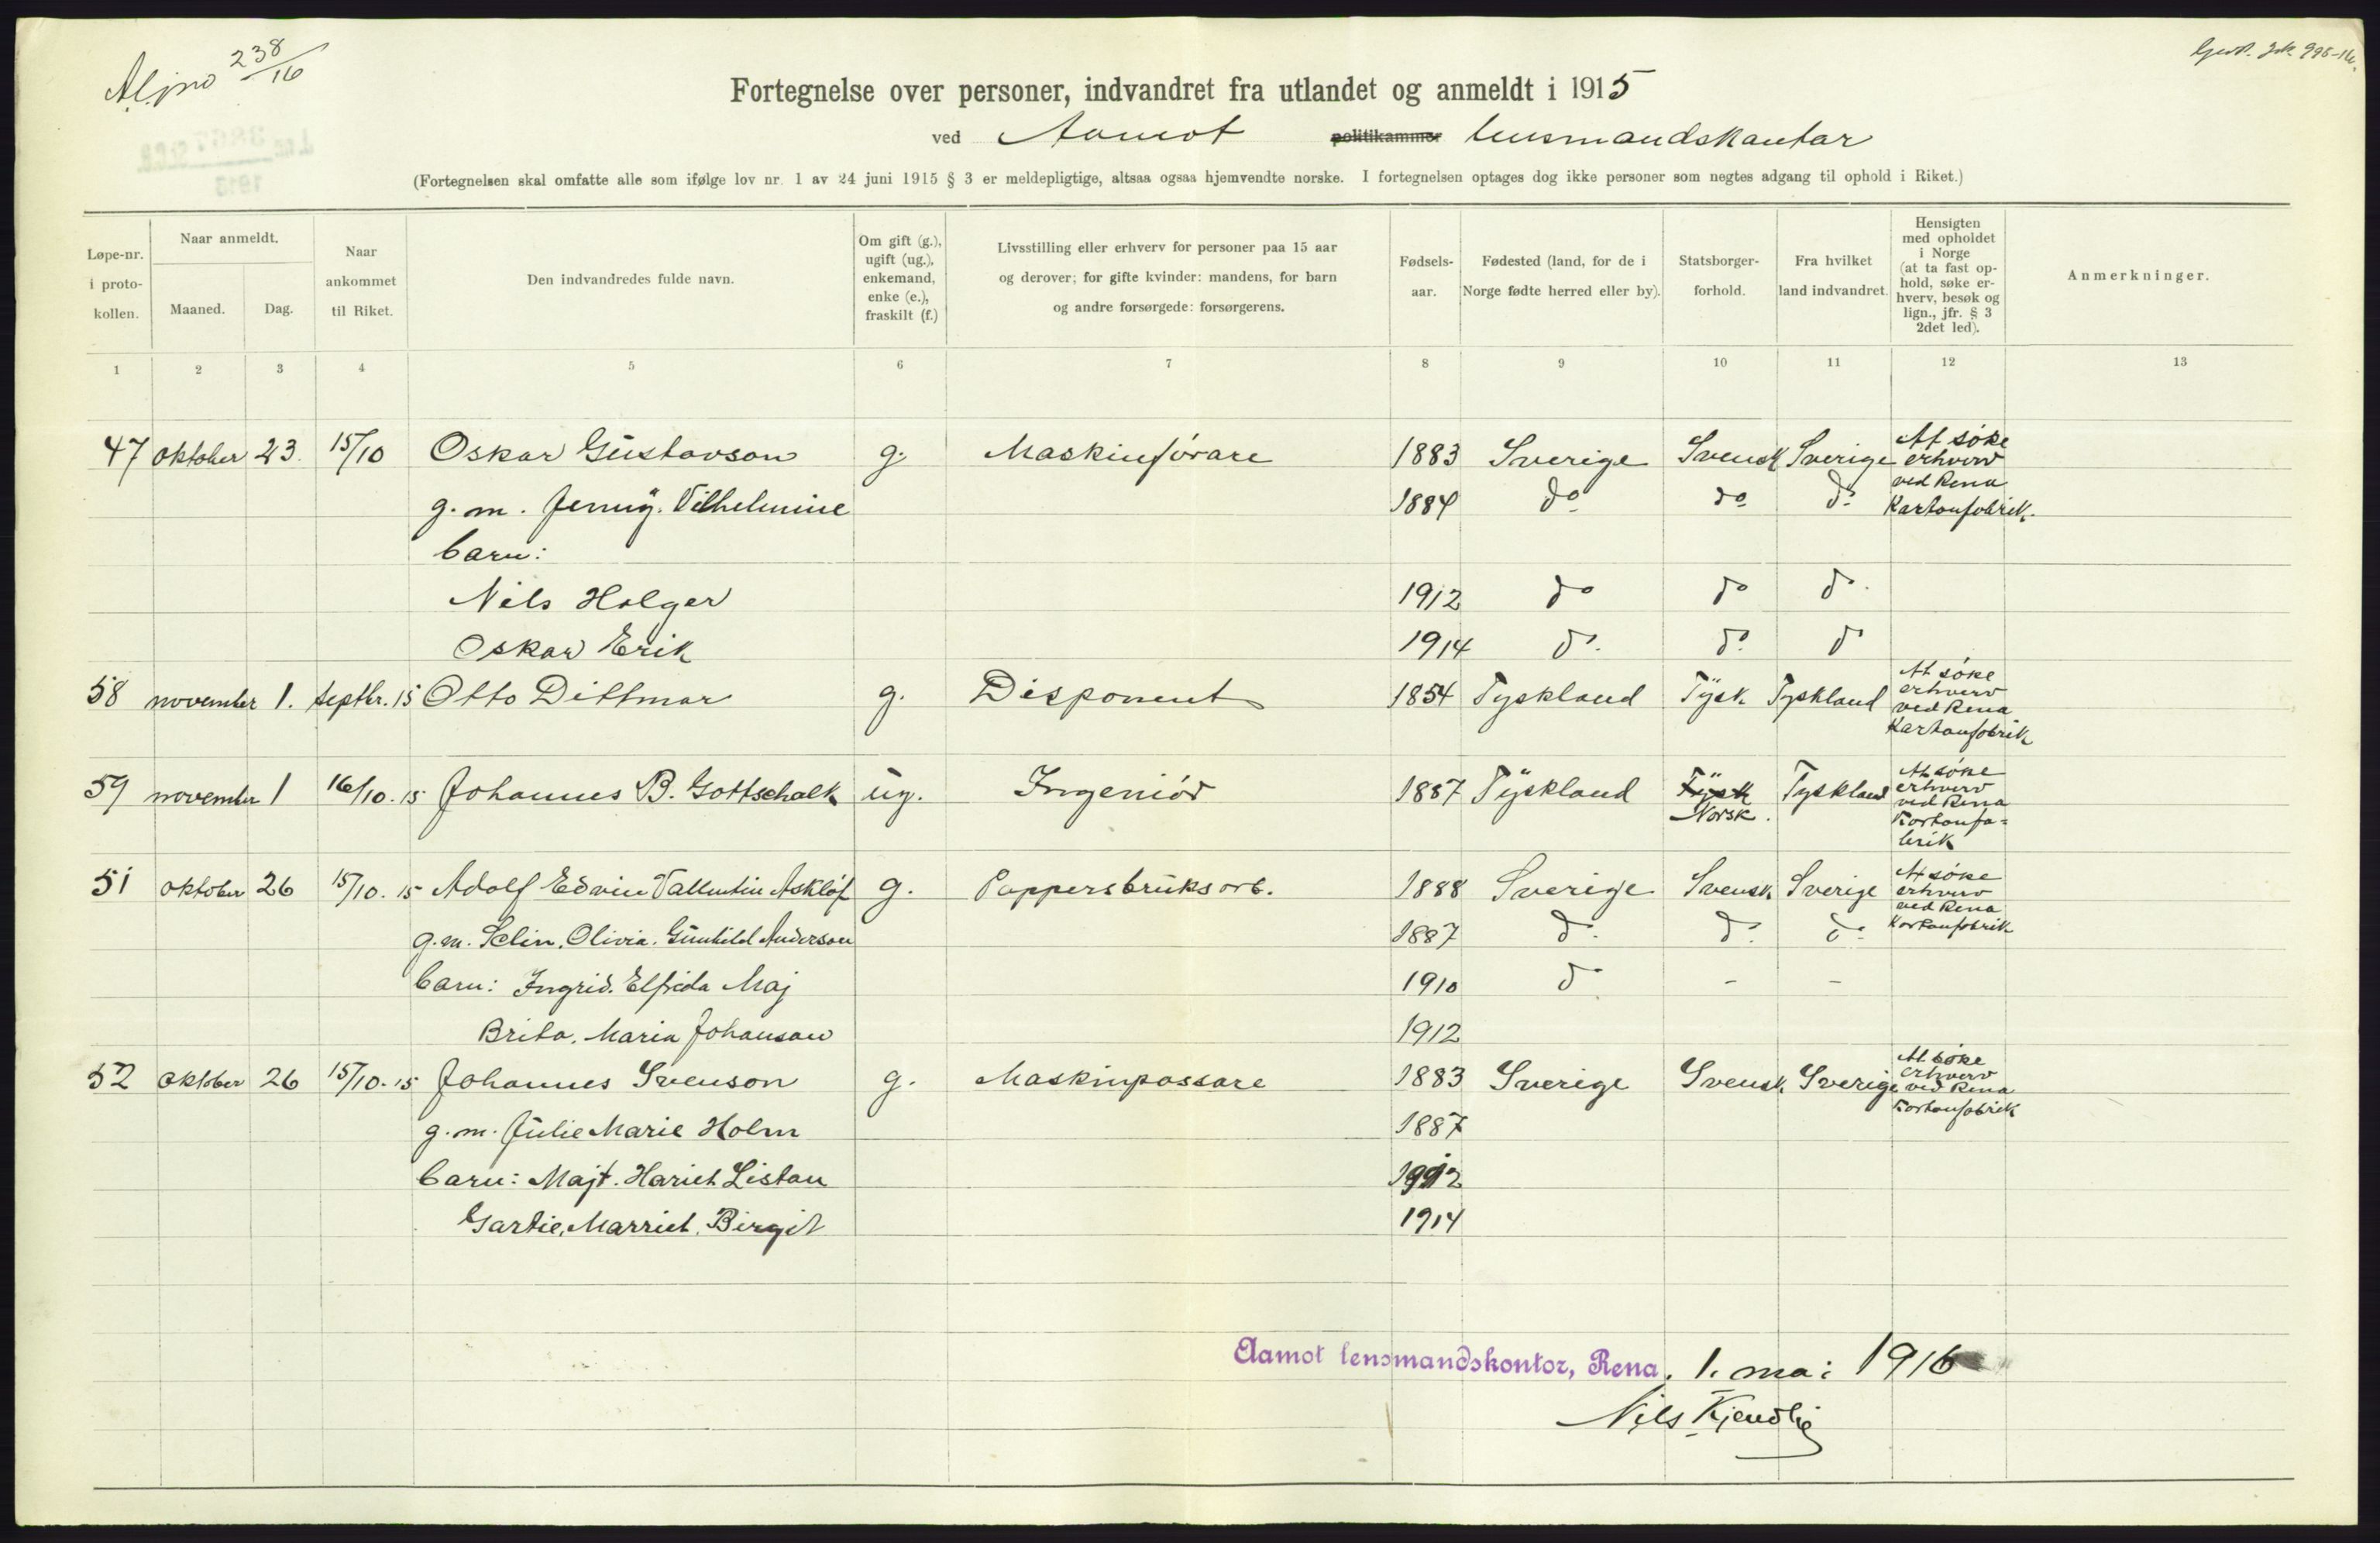 238/16
Fortegnelse over personer, indvandret fra utlandet og anmeldt i 1915
ved Aamot politikammer lensmandskontor
(Fortegnelsen skal omfatte alle som ifølge lov nr. 1 av 24 juni 1915 § 3 er meldepligtige, altsaa ogsaa hjemvendte norske. I fortegnelsen optages dog ikke personer som negtes adgang til ophold i Riket.)
Løpe-nr. i proto-kollen.
Naar anmeldt.
Maaned.
Dag.
Naar ankommet til Riket.
Den indvandredes fulde navn.
Om gift (g.), ugift (ug.), enkemand, enke (e.), fraskilt (f.)
Livsstilling eller erhverv for personer paa 15 aar og derover; for gifte kvinder: mandens, for barn og andre forsørgede: forsørgerens.
Fødsels-aar.
Fødested (land, for de i Norge fødte herred eller by).
Statsborger-forhold.
Fra hvilket land indvandret.
Hensigten med opholdet i Norge (at ta fast op-hold, søke er-hverv, besøk og lign., jfr. § 3 2det led).
Anmerkninger.
1 2 3 4 5 6 7 8 9 10 11 12 13
47 oktober 23. 15/10 Oskar Gustavson g. Maskinførare 1883 Sverige Svensk Sverige At søke erhverv ved Rena Kartonfabrik.
g.m. Jenny. Vilhelmine 1884 do do do
barn:
Nils Holger 1912 do do do
Oskar Erik 1914 do do do
58 november 1. septbr. 15 Otto Dittmar g. Disponent 1854 Tyskland Tysk Tyskland At søke erhverv ved Rena Kartonfabrik
59 november 1 16/10. 15 Johannes B. Gottschalk ug. Ingeniør 1887 Tyskland Tysk Norsk. Tyskland At søke erhverv ved Rena Kartonfa=brik
51 oktober 26 15/10. 15 Adolf Edvin Vallentin Askløf g. Pappersbruksarb. 1888 Sverige Svensk Sverige At søke erhverv ved Rena Kartonfabrik
g.m. Selin. Olivia. Gunhild Anderson 1887 do do do
barn: Ingrid. Elfrida Maj 1910 do - -
Brita. Maria Johanson 1912
52 oktober 26 15/10. 15 Johannes Svenson g. Maskinpassare 1883 Sverige Svensk Sverige At søke erhverv ved Rena Kartonfabrik
g.m. Julie Marie Holm 1887
barn: Majt. Hariet Listau 1912
Gartie, Marriet. Birgit 1914
Aamot lensmandskontor, Rena, 1. mai 1916
Nils Kjendlie